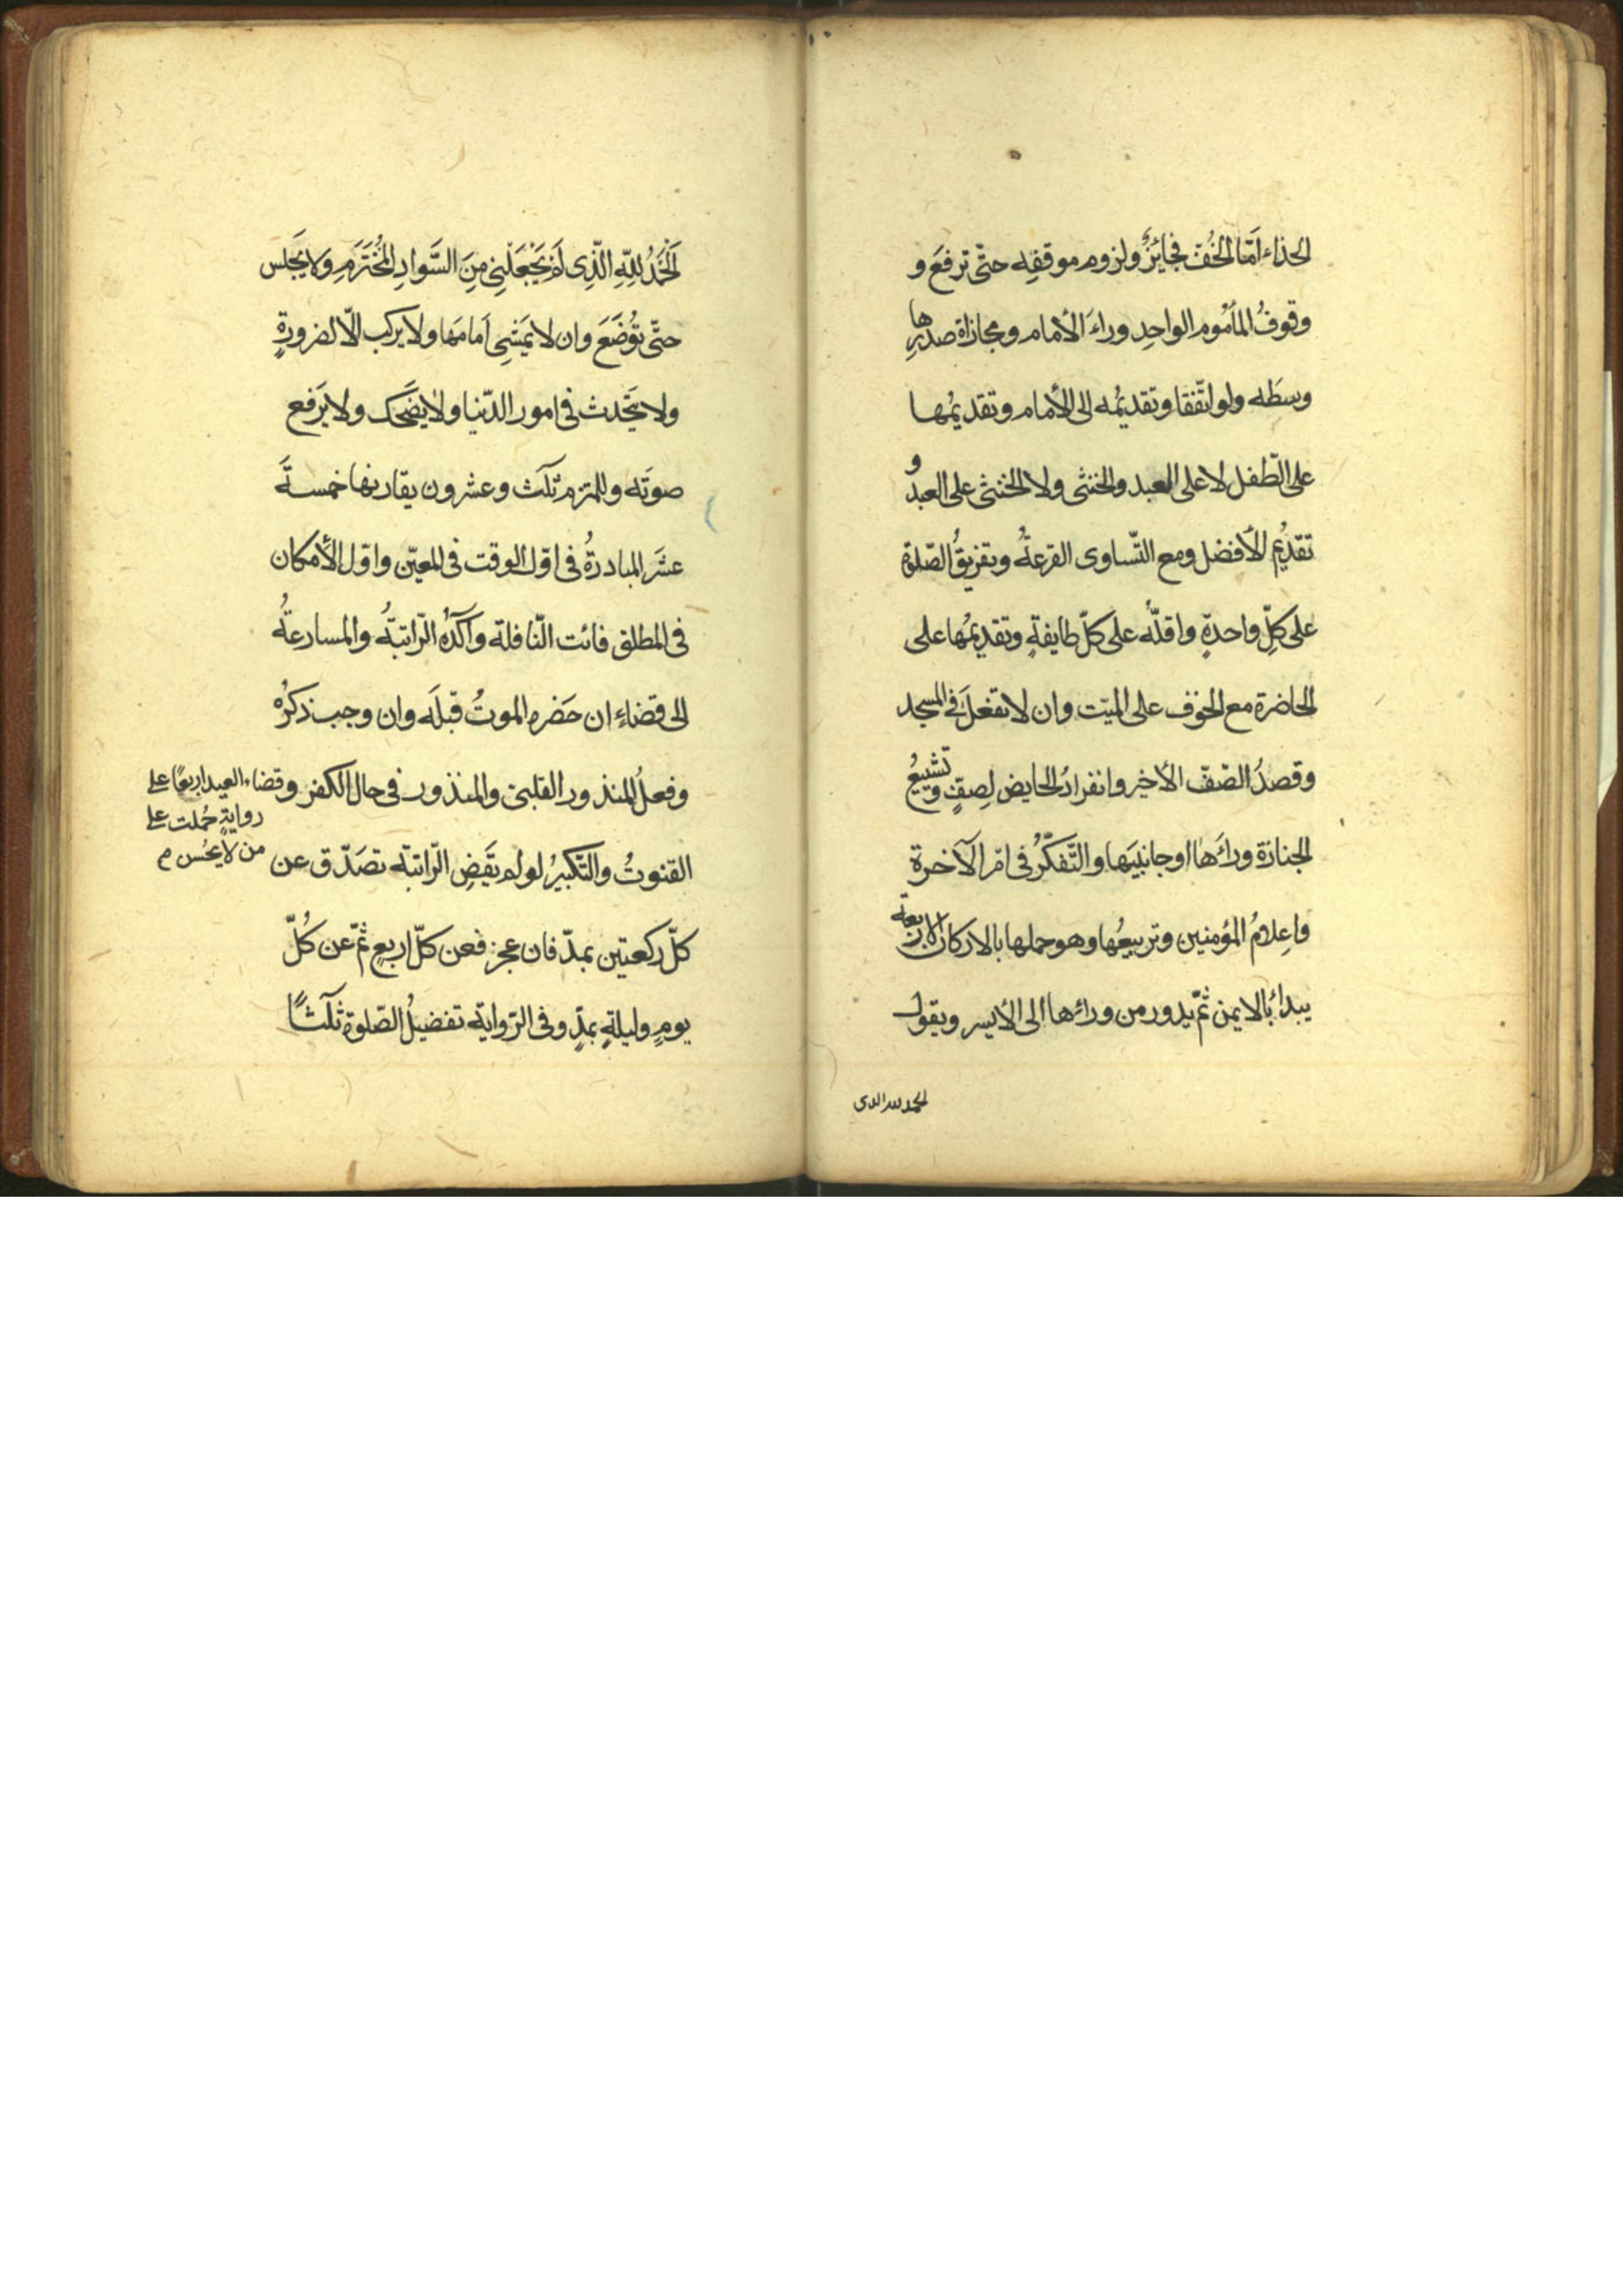 الحذاء امّا الخُفّ فجائزٌ ولزوم موقفِه حتّى ترفعَ و
وقوفُ المأمُوم الواحدِ وراءَ الأمام ومحاذاة صدرِها
وسطَه ولو اتّفقا وتقديمُه الى الأمام وتقديمُها
على الطّفل لا على العبد والخنثى ولا الخنثى على العبد و
تقديُم الأفضل ومع التّساوى القرعةُ وتفريقُ الصّلوة
على كلِّ واحدةٍ واقلّه على كلّ طايفةٍ وتقديمُها على
الحاضرة مع الخوف على الميّت وان لا تفعلَ فى المسجد
وقصدُ الصّفّ الأخير وانفرادُ الحايض بصفٍّ وتشييعُ
الجنازة وراءَها او جانبَيها والتّفكّرُ فى امْر الآخرة
واِعلامُ المؤمنين وتربيعُها وهو حملها بالاركان الاربعة
يبداءُ بالايمن ثمّ يدور من ورائها الى الأيسر ويقول
الحمد لله الدى
اَلحَمدُ لِلّهِ الّذِى لَمْ يَجْعَلْنِى مِنَ السَّوادِ المُخْتَرَمِ وَلا يَجلس
حتّى تُوضَعَ وان لا يَمشِى اَمامَها ولا يركب الّا لضرورةٍ
ولا يتحَدث فى امور الدّنيا ولا يضحَك ولا يَرفع
صوتَه وللملتزم ثلَث وعشرون يقارنها خمسةَ
عشَر المبادرةُ فى اوّل الوقت فى المعيّن واوّل الأمكان
فى المطلق فائت النّافلة وآكدُه الرّاتبةُ والمسارعةُ
الى قضاءِ ان حَضره الموتُ قبلَه وان وجب ذكرُه
وفعلُ المنذور القلبىّ والمنذور فى حال الكفر وقضاء العيد اربعًا على
رواية حُملت على
من لا يحُسن م
القنوتُ والتّكبيرُ لو لم يَقضِ الرّاتبة تصَدّق عن
كلّ ركعتين بمدّ فان عجز فعن كلّ اربعٍ ثمّ عن كُلّ
يومٍ وليلةٍ بمدٍّ وفى الرّواية تفضيلُ الصّلوة ثلَثًا